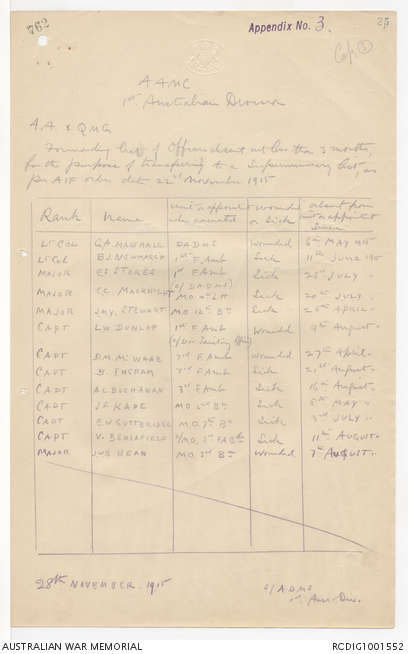 762
Appendix No. 3.
25
Cop
AAMC
1st Australian Division
A.A. & QMG
Forwarding list of Officers absent not less than 3 months,
for the purpose of transferring to a Supernumerary list, as
per AIF order dated 22nd November 1915
Rank Name unit & appointment when evacuated wounded or Sick absent from unit or appointment since
Lt Col GA MARSHALL DADMS Wounded 6th MAY 1915
Lt Col BJ NEWMARCH 1st F Amb Sick 11th June 1915
MAJOR ES STOKES 1st F Amb Sick 25th JULY "
MAJOR MO Sick 20th JULY "
MAJOR JMY STEWART MO 12th Bn Sick 25th APRIL "
CAPT LW DUNLOP 1st F Amb Wounded 9th August "
CAPT DM McWHAE 3rd F Amb Wounded 27th April "
CAPT B. F Amb Sick 21st August "
CAPT AL BUCHANAN 3rd F Amb Sick 16th August "
CAPT JF KADE MO 2nd Bn Sick MAY "
CAPT EW GUTTERIDGE MO, 7th Bn Sick 3rd JULY "
CAPT V. BENJAFIELD Sick 11th AUGUST "
MAJOR BEAN MO 3rd Bn Wounded 7th AUGUST "
28th NOVEMBER. 1915
ADMS
1st Aus Div.
AUSTRALIAN WAR MEMORIAL
RCDIG1001552